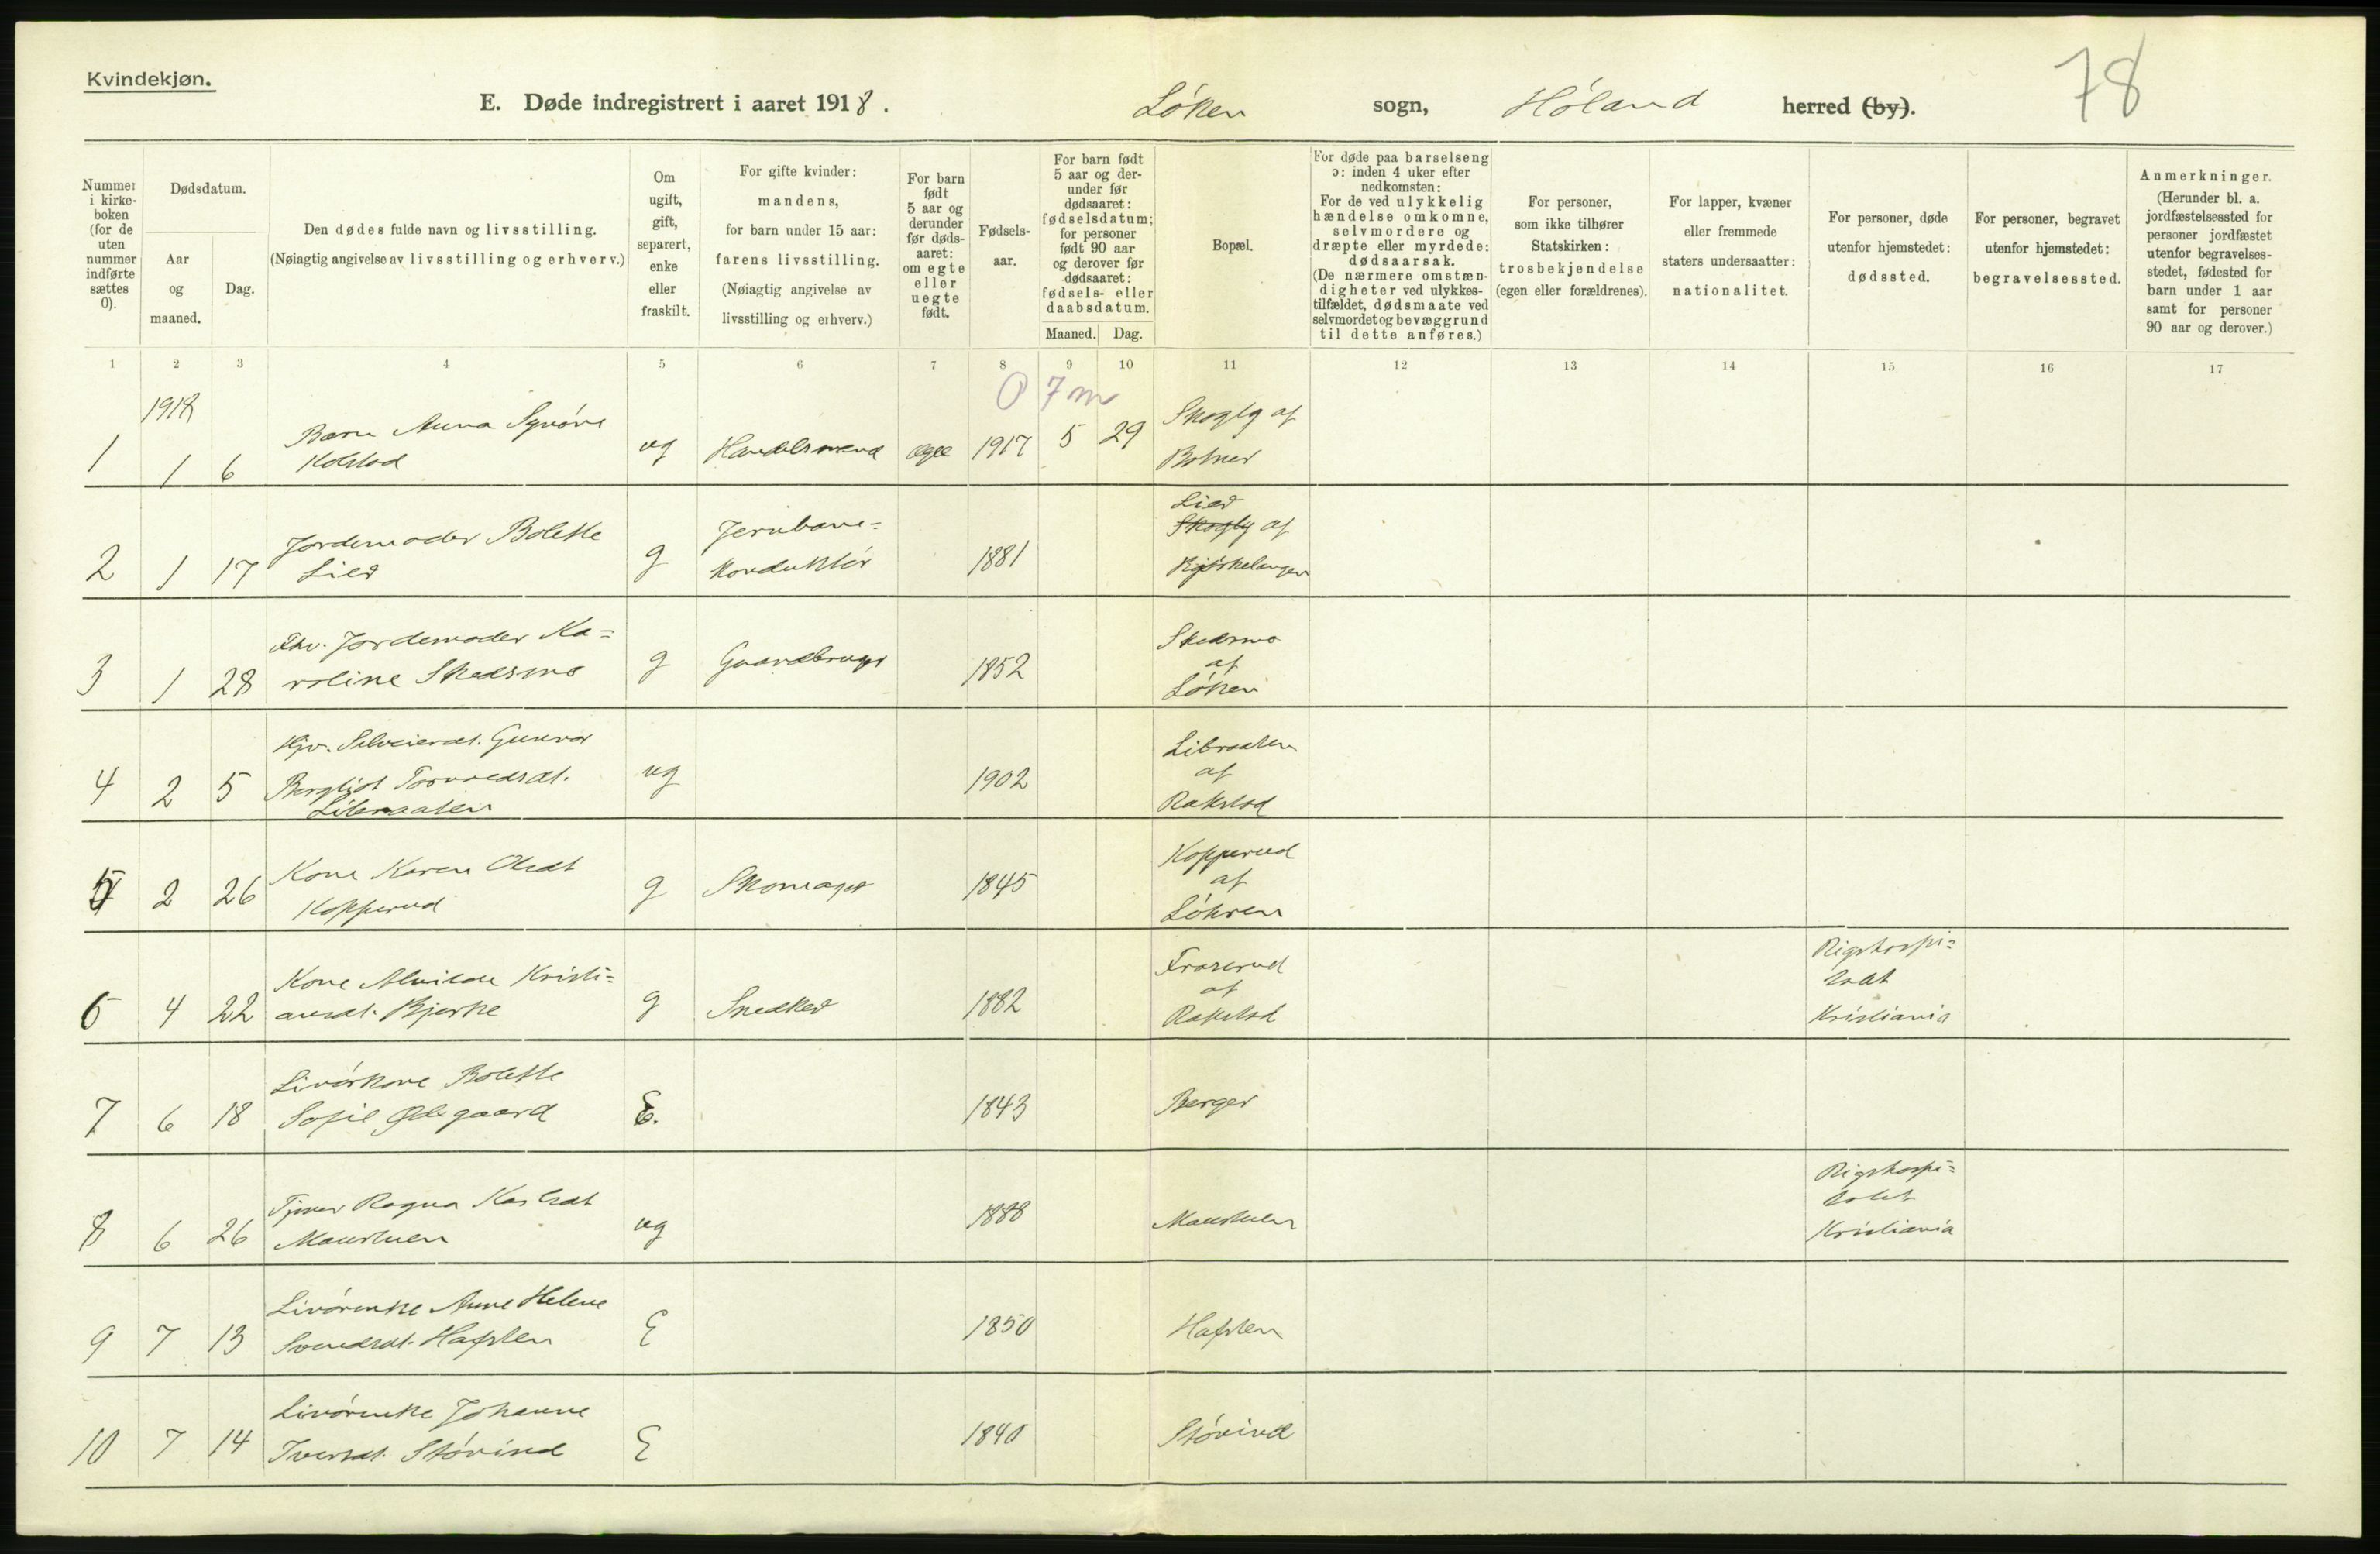 Kvindekjøn.
E. Døde indregistrert i aaret 1918. Løken sogn, Høland herred (by).
78
Nummer i kirke-boken (for de uten nummer indførte sættes 0).
Dødsdatum.
Aar og maaned.
Dag.
Den dødes fulde navn og livsstilling.
(Nøiagtig angivelse av livsstilling og erhverv.)
Om ugift, gift, separert, enke eller fraskilt.
For gifte kvinder: mandens, for barn under 15 aar: farens livsstilling. (Nøiagtig angivelse av livsstilling og erhverv.)
For barn født 5 aar og derunder før døds-aaret: om egte eller uegte født.
Fødsels-aar.
For barn født 5 aar og der-under før dødsaaret: fødselsdatum; for personer født 90 aar og derover før dødsaaret: fødsels- eller daabsdatum.
Maaned. Dag.
Bopæl.
For døde paa barselseng ɔ: inden 4 uker efter nedkomsten: For de ved ulykkelig hændelse omkomne, selvmordere og dræpte eller myrdede: dødsaarsak. (De nærmere omstæn-digheter ved ulykkes-tilfældet, dødsmaate ved selvmordet og bevæggrund til dette anføres.)
For personer, som ikke tilhører Statskirken: trosbekjendelse (egen eller forældrenes).
For lapper, kvæner eller fremmede staters undersaatter: nationalitet.
For personer, døde utenfor hjemstedet: dødssted.
For personer, begravet utenfor hjemstedet: begravelsessted.
Anmerkninger. (Herunder bl. a. jordfæstelsessted for personer jordfæstet utenfor begravelses-stedet, fødested for barn under 1 aar samt for personer 90 aar og derover.)
1 2 3 4 5 6 7 8 9 10 11 12 13 14 15 16 17
1918
0 7 m
1 1 6 Barn Anna Synøve Kolstad ug Handelsmand egte 1917 5 29 Skogly af Botner
2 1 17 Jordemoder Bolette Lied g Jernbane-konduktør 1881 Lied Skogly af Kjørkelangen
3 1 28 Fhv. Jordemoder Ka-roline Skedsmo g Gaardbruger 1852 Skedsmo af Løken
4 2 5 Gunvor Bergliot Torvaldsdt. Libraaten ug 1902 Libraaten af Rakstad
5 2 26 Kone Karen Olsdt Kopperud g Skomager 1845 Kopperud af Løkren
6 4 22 Kone Alvilde Kristi-ansdt. Bjerke g Snedker 1882 Fraserud af Rakstad Rigshospi-talet Kristiania
7 6 18 Livørkone Bolette Sofie Ødegaard E. 1843 Berger
8 6 26 Tjener Ragna Karlsdt Maustuen ug 1888 Maustuen Rigshospi-talet Kristiania
9 7 13 Livørenke Anne Helene Svendsdt. Hafsten E 1850 Hafsten
10 7 14 Livørenke Johanne Iversdt. Støvind E 1840 Støvind